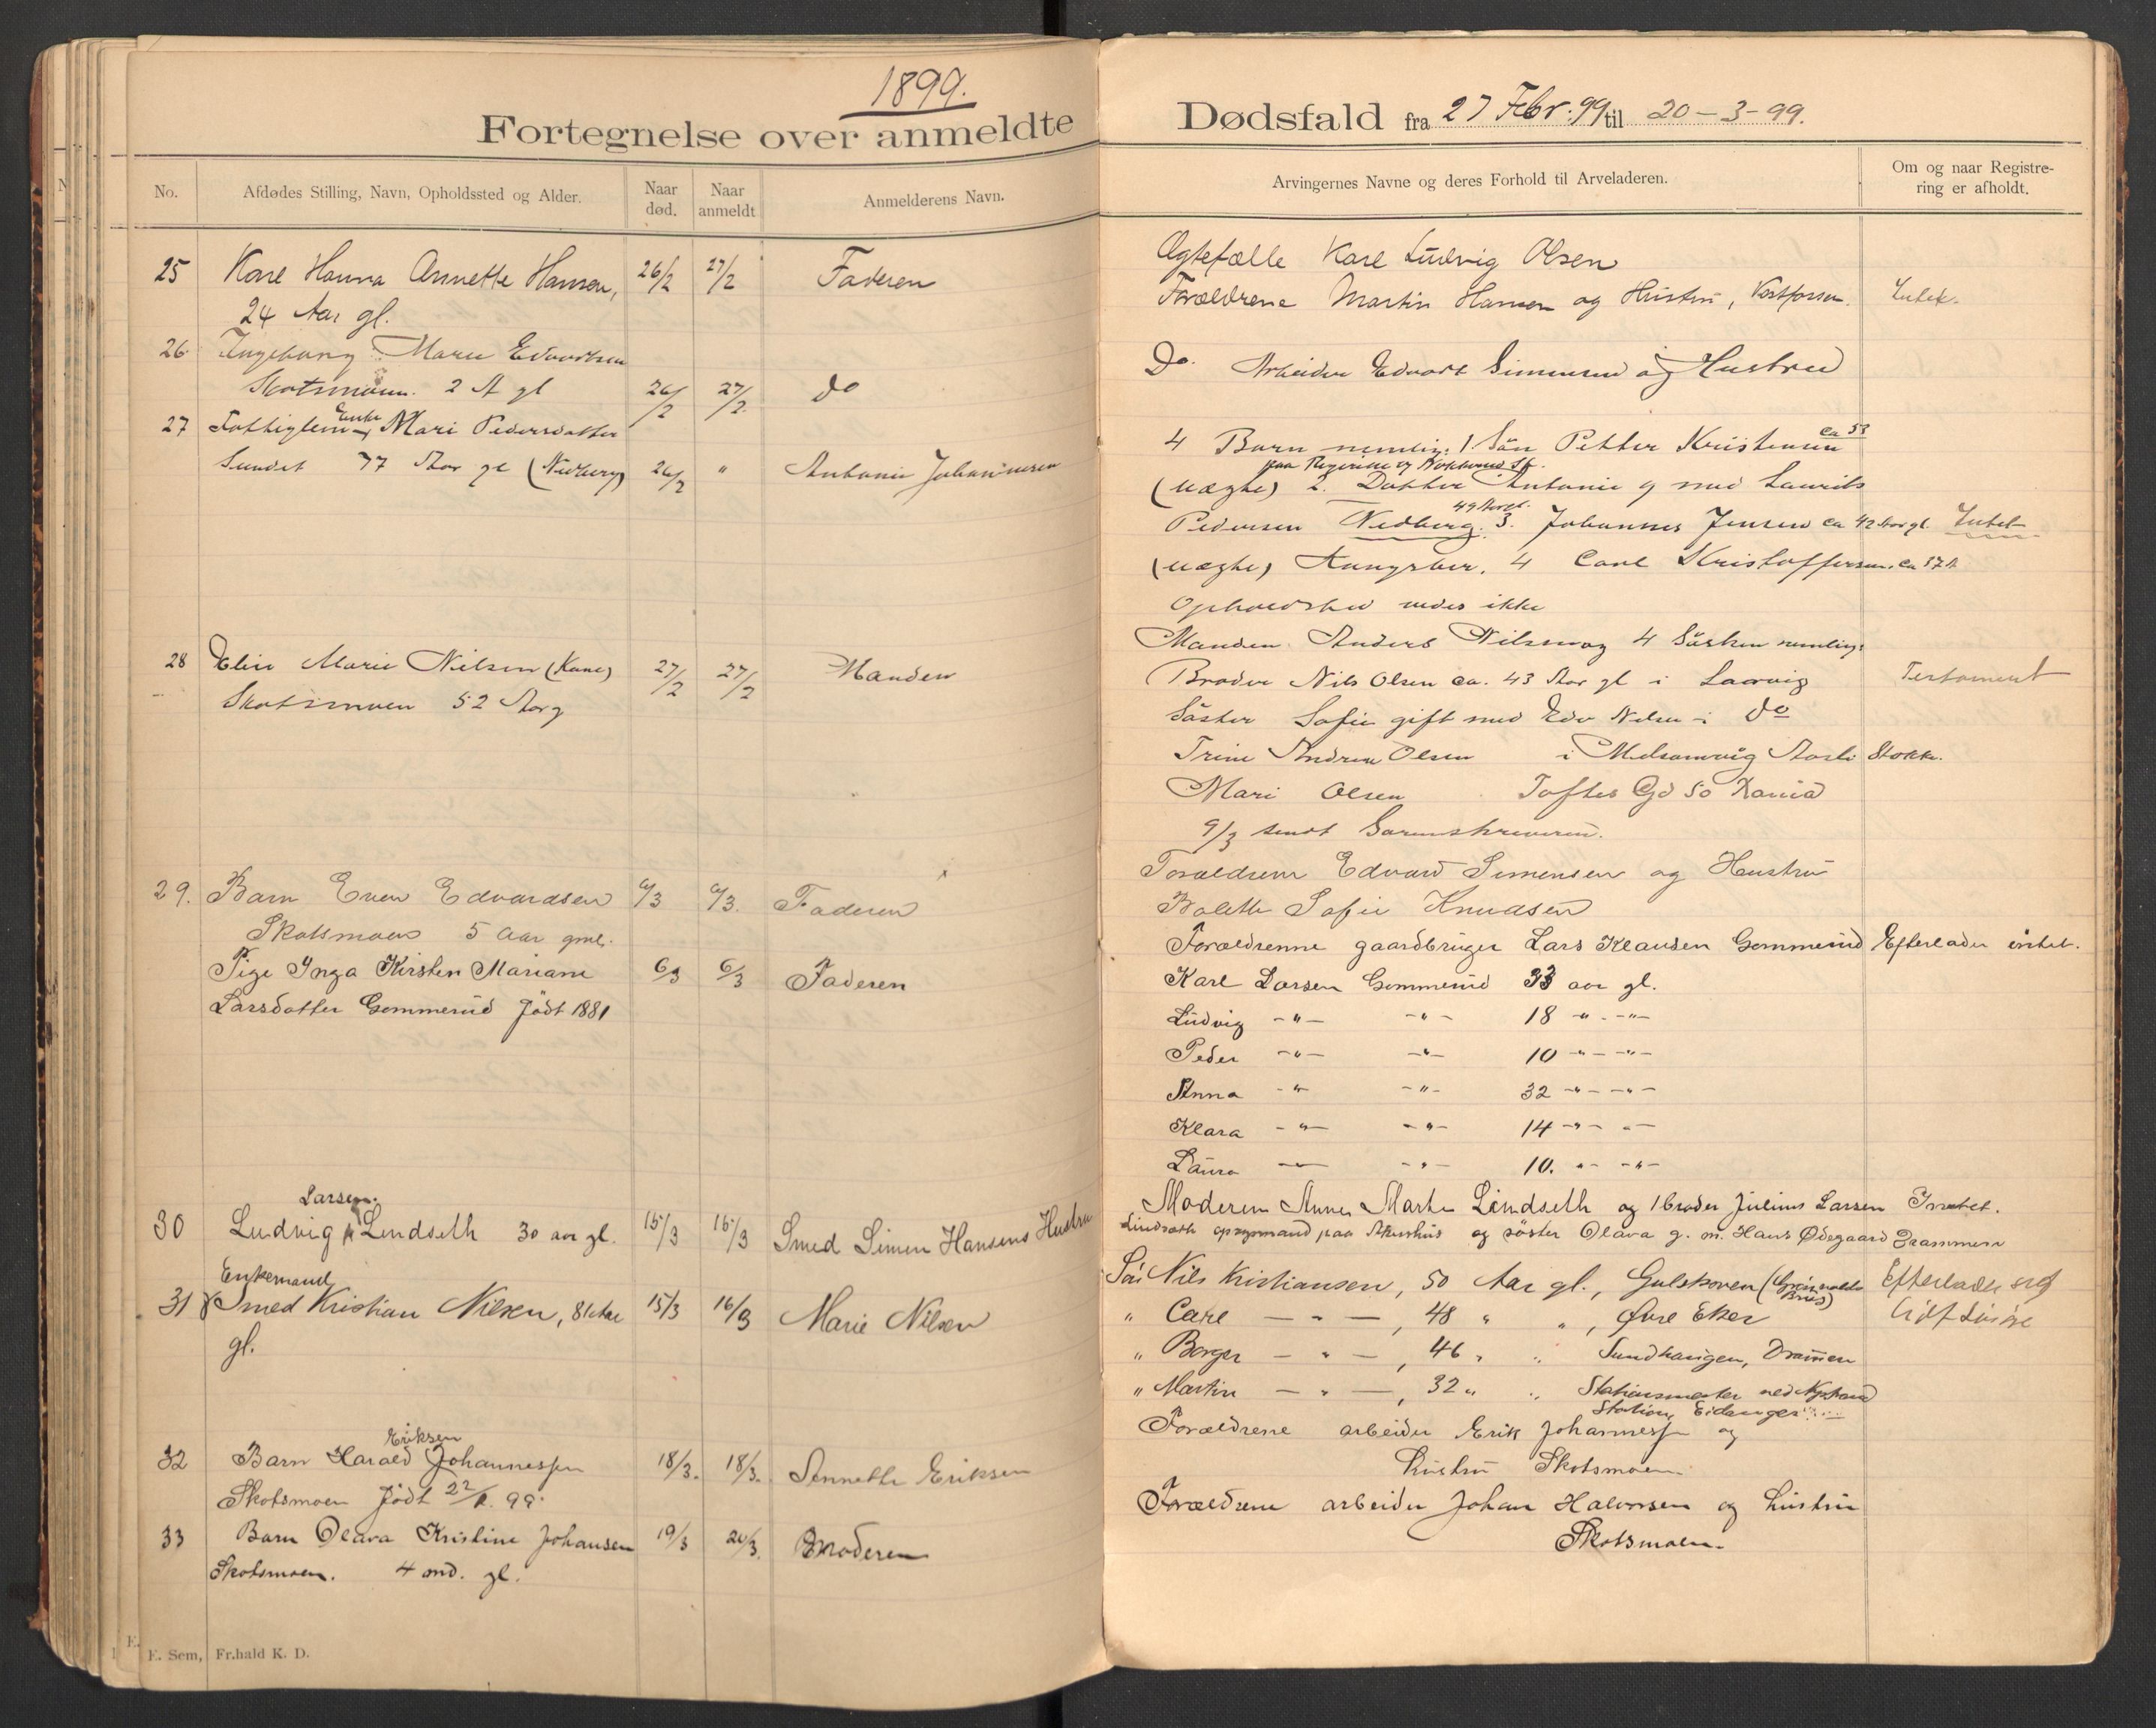 1899.
Fortegnelse over anmeldte
No.
Afdødes Stilling, Navn, Opholdssted og Alder.
Naar død.
Naar anmeldt
Anmelderens Navn.
25 Kone Hanna Annette Hansen, 26/2 27/2 Faderen
24 Aar gl.
26 Ingeborg Marie Edvardsen
Skotsmoen. 2 A gl 26/2 27/2 do
27 Fattiglem Enke Mari Pedersdatter
Sundet 77 Aar gl (Nedberg) 26/2 " Antonie Johannesen
28 Elise Marie Nilsen (Kone) 27/2 27/2 Manden
Skotsmoen 52 Aar g
29. Barn Even Edvardsen 6/3 6/3. Faderen
Skotsmoen 5 Aar gml.
Pige Inga Kirsten Mariane 6/3 6/3 Faderen
Larsdatter Gommerud født 1881
Larsen.
30 Ludvig Lindseth 30 aar gl. 15/3 15/3 Smed Simen Hansens Hustru
Enkemand
31 Smed Kristian Nilsen, 81 Aar 15/3 16/3 Marie Nilsen
gl.
Eriksen
32 Barn Harald Johannessen 18/3. 18/3. Annette Eriksen
Skotsmoen født 22/2. 99.
33 Barn Olava Kristine Johansen 19/3 20/3. Moderen
Skotsmoen. 4 md. gl.
E. Sem, Fr.hald K. D.
Dødsfald fra 27 Febr. 99 til 20-3-99.
Arvingernes Navne og deres Forhold til Arveladeren.
Om og naar Registre-
ring er afholdt.
Ægtefælle Karl Ludvig Olsen
Forældrene Martin Hansen og Hustru, Vestfossen. Intet.
Do. Arbeider Edvart Simensen og Hustru
4 Børn nemlig: 1 Søn Petter Kristensen ca 53
(uægte) 2. Datter Antonie g med Laurits
49 Aar gl.
Pedersen Nedberg. 3. Johannes Jensen ca 42 Aar gl. Intet
(uægte) 4 Carl Kristoffersen. ca 37 A
Opholdsted vides ikke
Manden Anders Nilsen og 4 Søsken nemlig:
Broder Nils Olsen ca. 43 Aar gl i Laurvig Testament
Søster Sofie gift med Edv Nilsen i do
Trine Andrea Olsen i Melsomvig Stokke.
Mari Olsen Toftes Gd 50 Kania
9/3 sendt Sorenskriveren.
Forældrene Edvard Simensen og Hustru
Bolette Sofie Knudsen
Forældrenne gaardbruger Lars Klausen Gommerud Efterlader intet.
Karl Larsen Gommerud 33 aar gl.
Ludvig -"- -"- 18 -"- -"-
Peder -"- -"- 10 -"- -"-
Anna -"- -"- 32 -"- -"-
Klara -"- -"- 14 -"- -"-
Laura -"- -"- 10. -"- -"-
Moderen Anne Marte Lindseth og 1 broder Julius Larsen Intet.
Lindseth opsynsmand paa Akershus og søster Olava g. m. Hans Ødegaard Drammen
Søn Nils Kristiansen, 50 Aar gl., Gulskoven Efterlader sig
" Carl - " - , 48 " " , Øvre Eker
" Borger - " - , 46 " " Sundhaugen, Drammen
" Martin - " - , 32 " " Stationsmester ved Nystrand
Station, Eidanger
Forældrene arbeider Erik Johannessen og
hustru Skotsmoen.
Forældrene arbeider Johan Halvorsen og hustru
Skotsmoen.